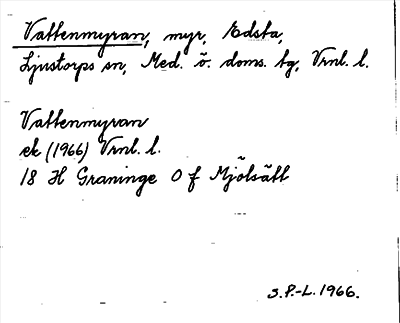 Vattenmyran, myr, Edsta,
Ljustorps sn, Med. ö. doms. tg, Vrnl. l.
Vattenmyran
ek (1966) Vrnl. l.
18 H Graninge O f Mjölsätt
S.P.-L. 1966.